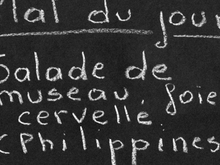 Mal du jour
Salade de
museau, foie
cervelle
(Philippines